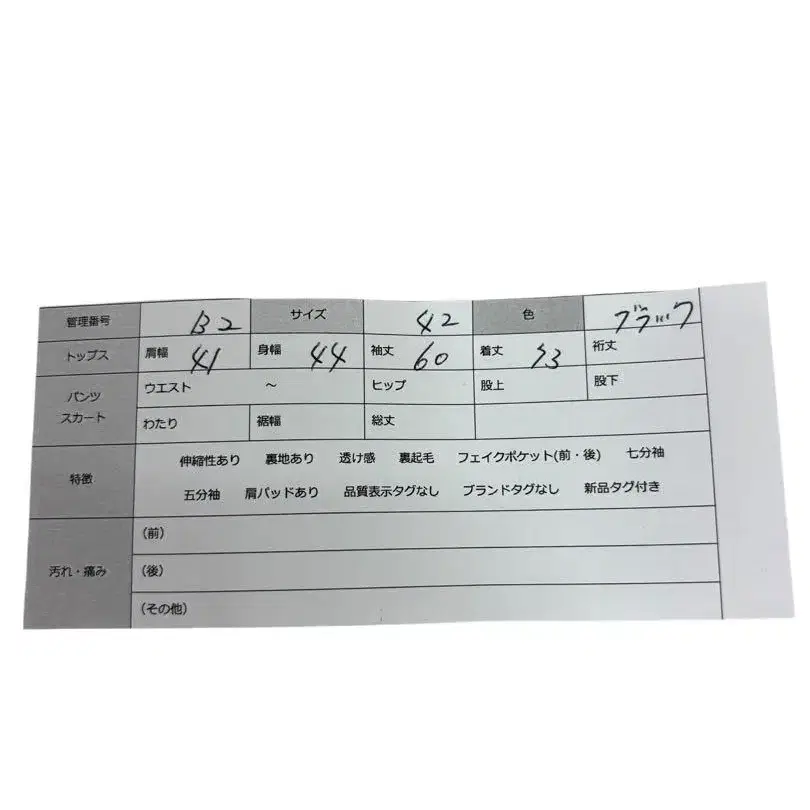 管理番号 B2 サイズ 42 色 ブラック
トップス 肩幅 41 身幅 44 袖丈 60 着丈 53 裄丈
パンツ スカート ウエスト ～ ヒップ 股上 股下
わたり 裾幅 総丈
特徴 伸縮性あり 裏地あり 透け感 裏起毛 フェイクポケット(前・後) 七分袖
五分袖 肩パッドあり 品質表示タグなし ブランドタグなし 新品タグ付き
汚れ・痛み (前)
(後)
(その他)